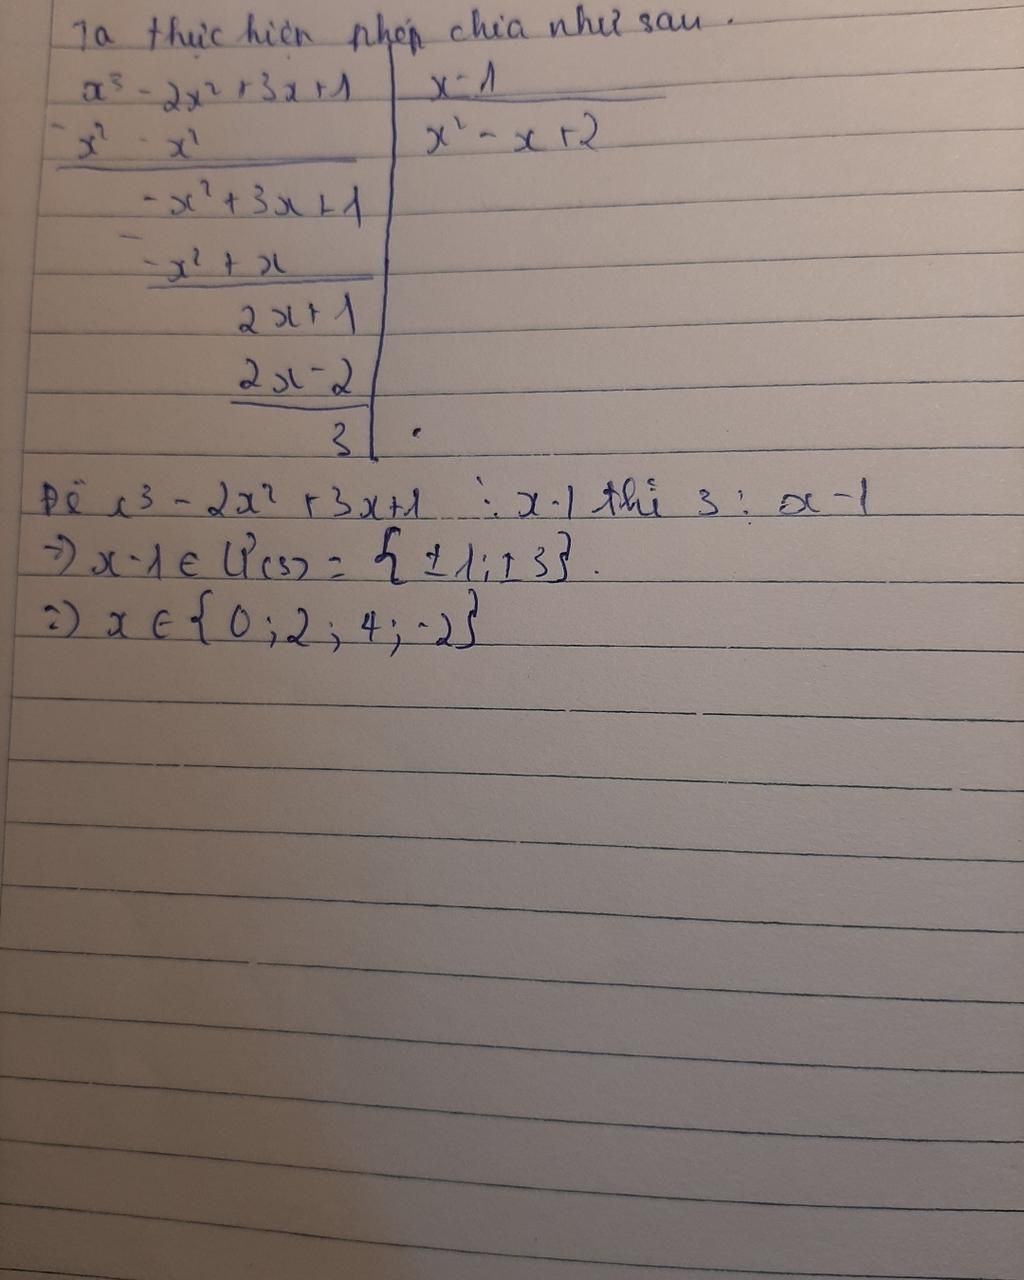 Ta thực hiện phép chia như sau.
x³ - 2x² + 3x + 1 | x - 1
- x² - x² | x² - x + 2
-x² + 3x + 1
- -x² + x
2x + 1
2x - 2
3
Để x³ - 2x² + 3x + 1 ⋮ x - 1 thì 3 ⋮ x - 1
=> x - 1 ∈ Ư(3) = {±1; ±3}.
=> x ∈ {0; 2; 4; -2}